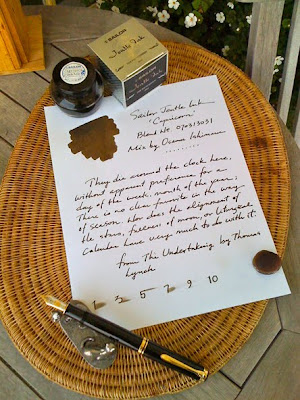 SAILOR
Jentle Ink
Sailor Jentle Ink
"Capricorn"
Blend No. 070313051
Mix by Osamu Ishimaru
They die around the clock here,
without apparent preference for a
day of the week, month of the year;
There is no clear favorite in the way
of season. Nor does the alignment of
the stars, fullness of moon, or liturgical
Calendar have very much to do with it.
from The Undertaking by Thomas
Lynch
1 3 5 7 9 10